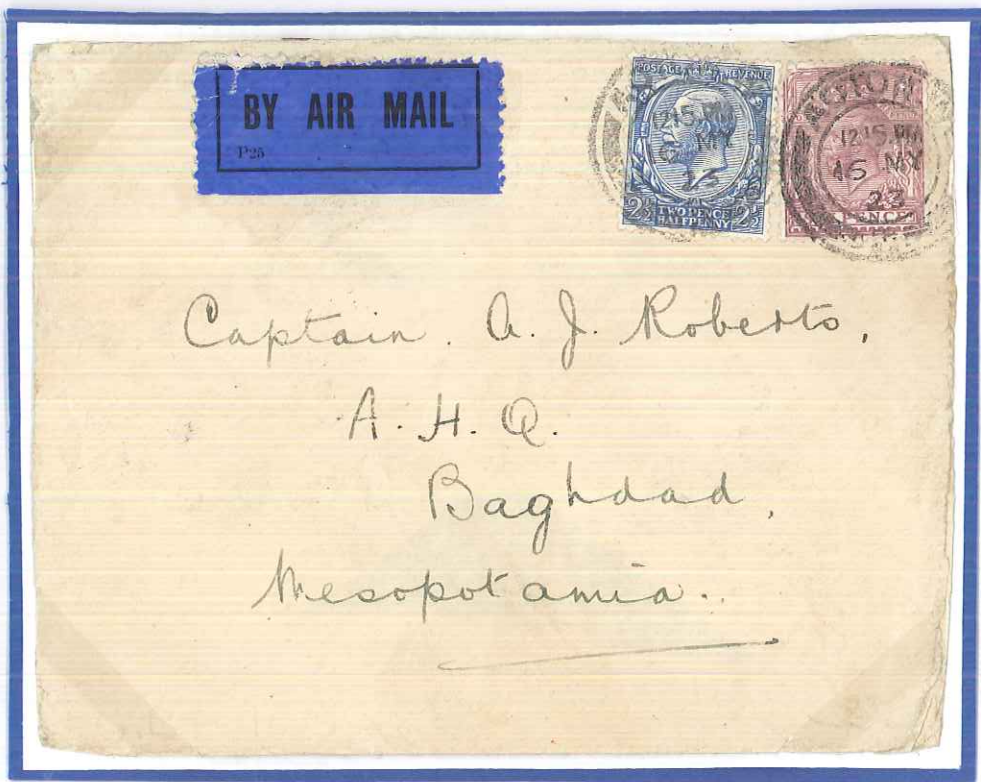 BY AIR MAIL
P25
POSTAGE REVENUE
2½ TWO PENCE HALFPENNY 2½
12.15 PM
MY
12.15 PM
15 MY
23
PENCE
Captain. A. J. Roberts,
A. H. Q.
Baghdad,
Mesopotamia.